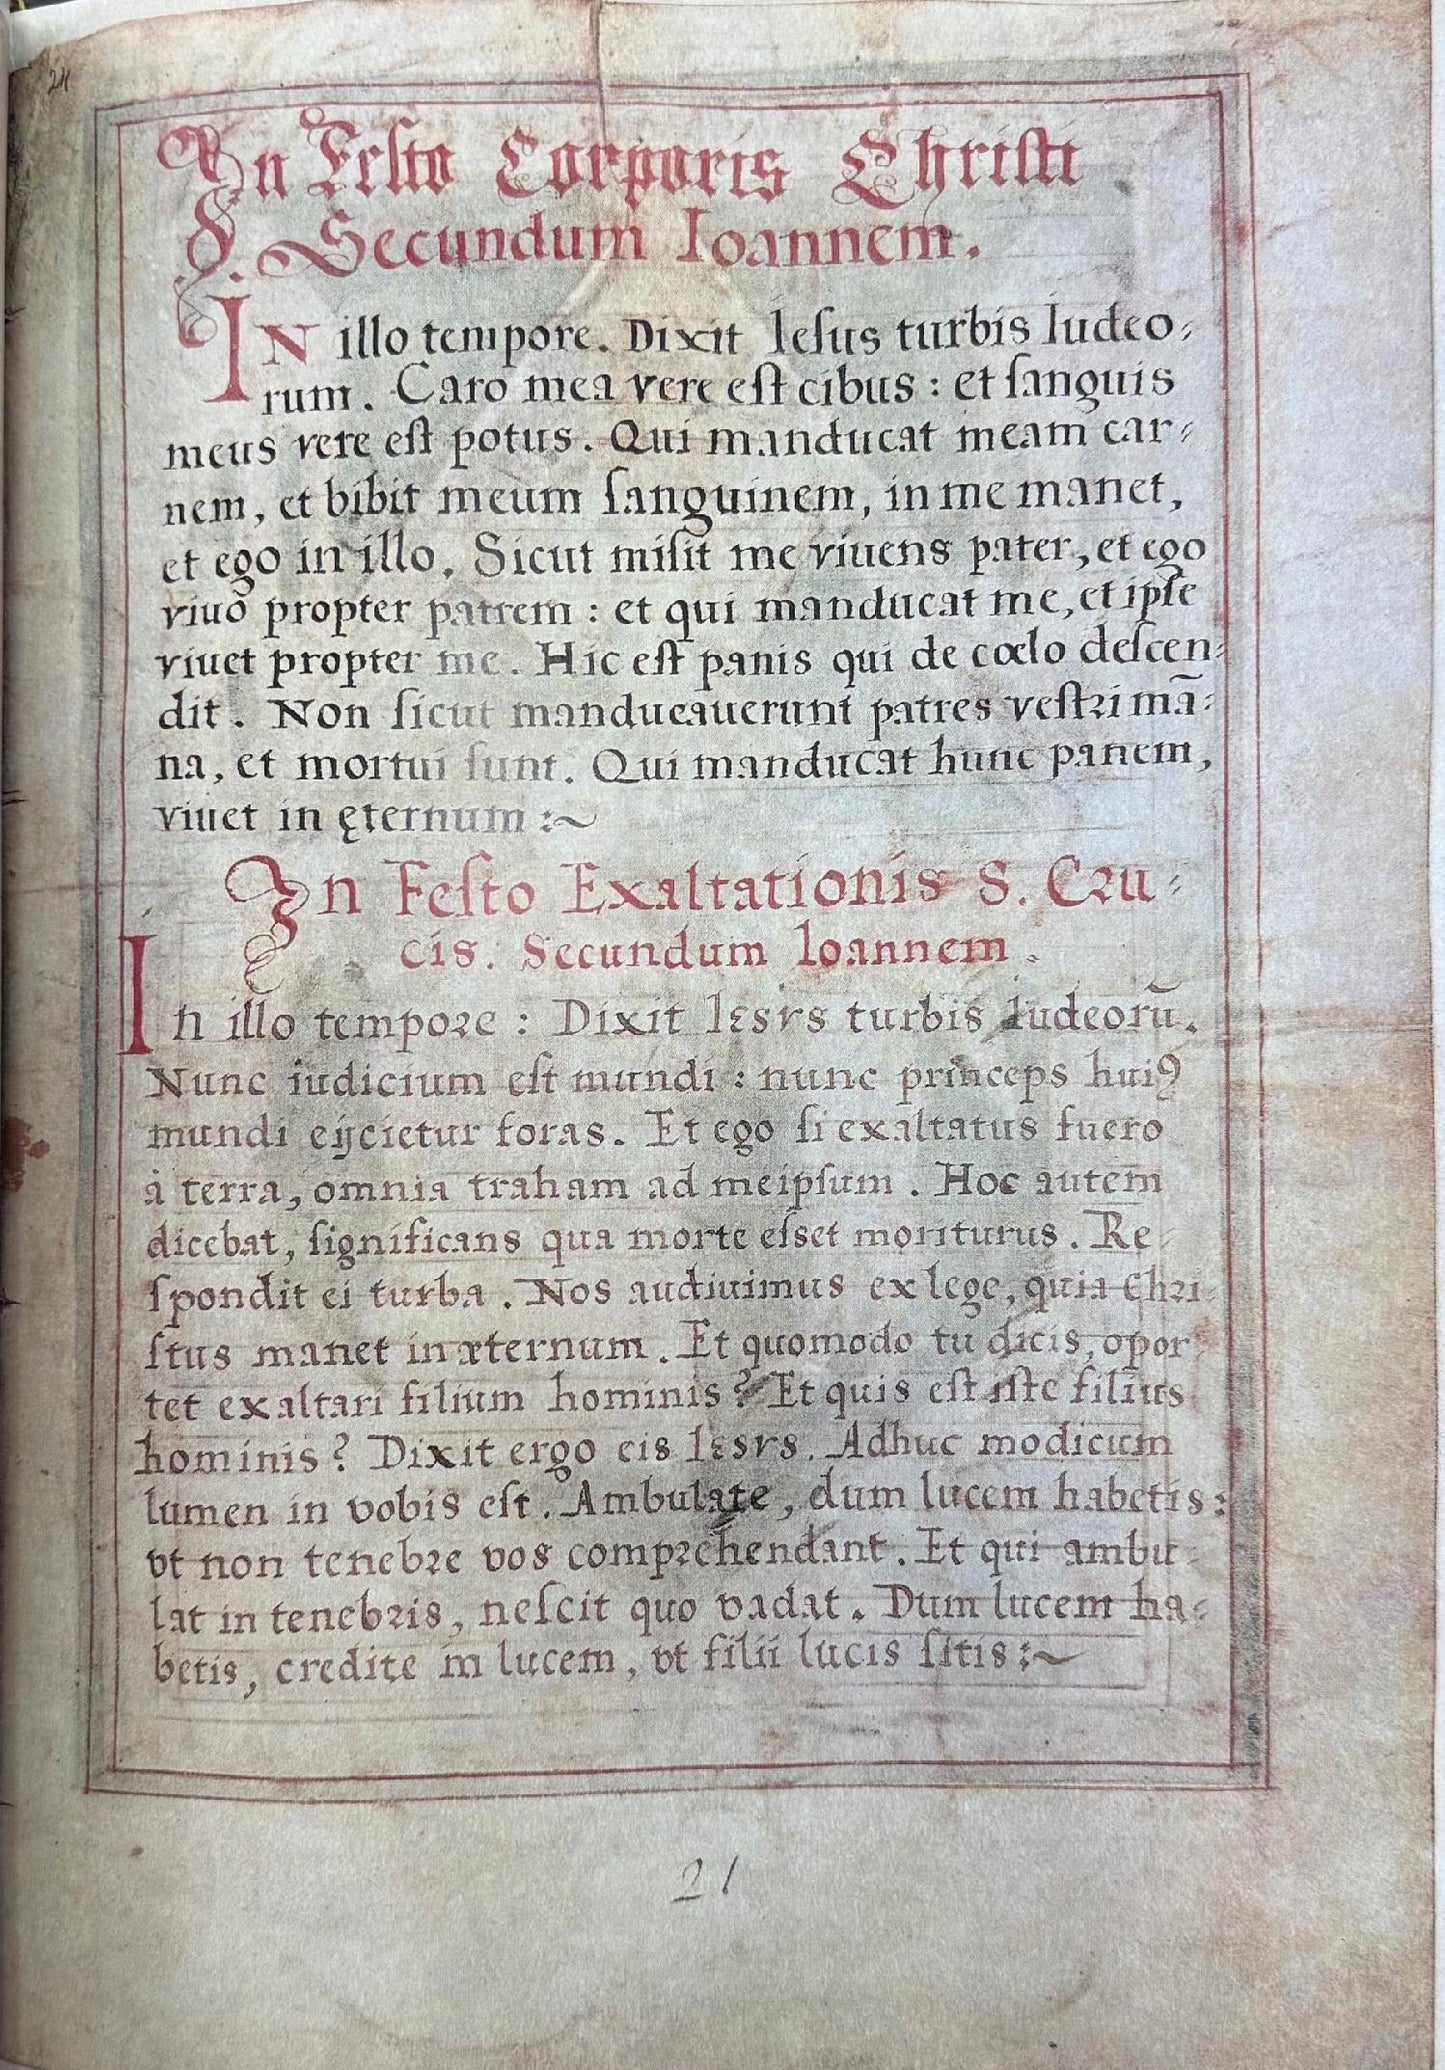 21
In Festo Corporis Christi
S. Secundum Ioannem.
IN illo tempore. Dixit Iesus turbis Iudeo⸗
rum. Caro mea vere eſt cibus : et ſanguis
meus vere eſt potus. Qui manducat meam car⸗
nem, et bibit meum ſanguinem, in me manet,
et ego in illo. Sicut miſit me viuens pater, et ego
viuo propter patrem : et qui manducat me, et ipſe
viuet propter me. Hic eſt panis qui de cœlo deſcen⸗
dit. Non ſicut manducauerunt patres veſtri mã⸗
na, et mortui ſunt. Qui manducat hunc panem,
viuet in ęternum :~
In Feſto Exaltationis S. Cru⸗
cis. Secundum Ioannem.
In illo tempore : Dixit Iesvs turbis Iudeorũ.
Nunc iudicium eſt mundi : nunc princeps huiꝰ
mundi eijcietur foras. Et ego ſi exaltatus fuero
à terra, omnia traham ad meipſum. Hoc autem
dicebat, ſignificans qua morte eſset moriturus. Re⸗
ſpondit ei turba. Nos audiuimus ex lege, quia Chri⸗
ſtus manet in æternum. Et quomodo tu dicis, opor⸗
tet exaltari filium hominis? Et quis eſt iſte filius
hominis? Dixit ergo eis Iesvs. Adhuc modicum
lumen in vobis eſt. Ambulate, dum lucem habetis :
vt non tenebre vos comprehendant. Et qui ambu⸗
lat in tenebris, neſcit quo vadat. Dum lucem ha⸗
betis, credite in lucem, vt filii lucis ſitis :~
21